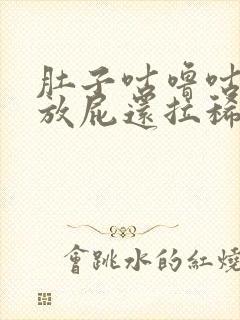 肚子咕嚕咕
放屁還拉稀
會跳水的紅燒